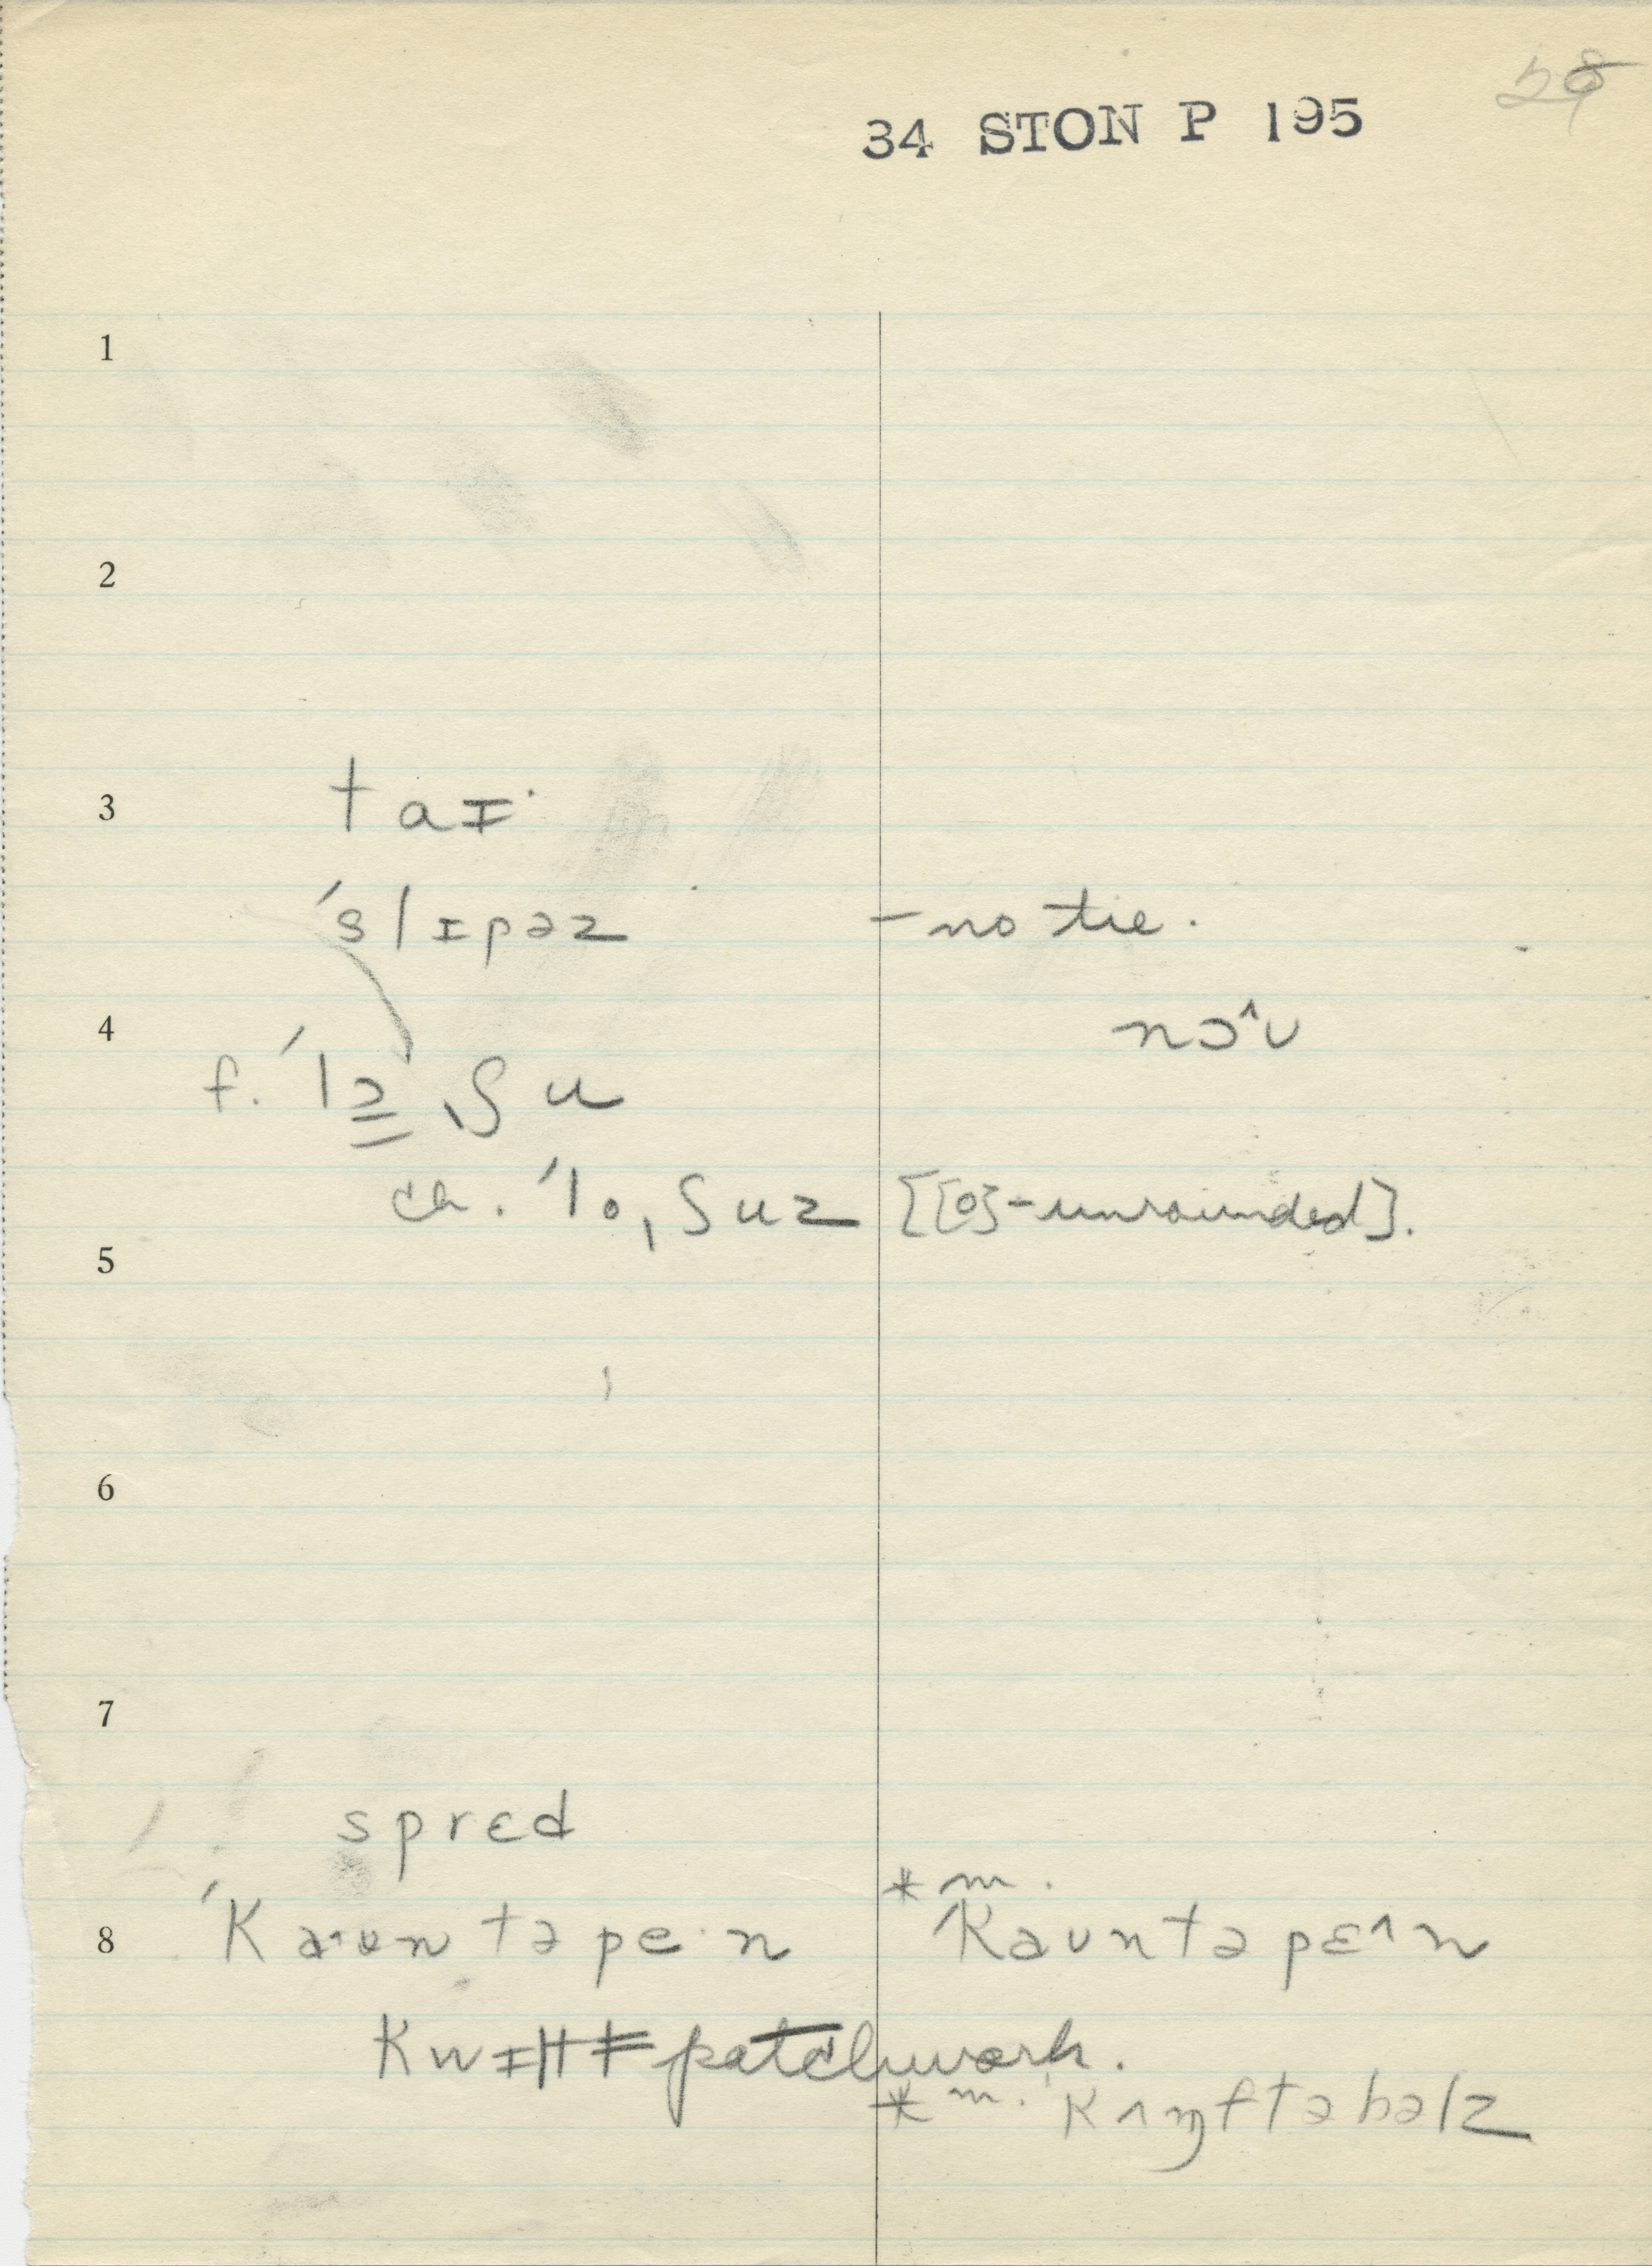 58
34 STON P 195
1
2
3 taɪ·
ˈslɪpəz – no tie.
4 nɔ^ʊ
f. ˈlə̳ˌʃu
ch. ˈloˌʃuz [[o]-unrounded].
5
6
7
sprɛd
* m.
8 ˈKaʊntəpe·n ˈKaʊntəpɛ^n
Kwɪlt patchwork.
* m. ˈKʌɱftəbəlz